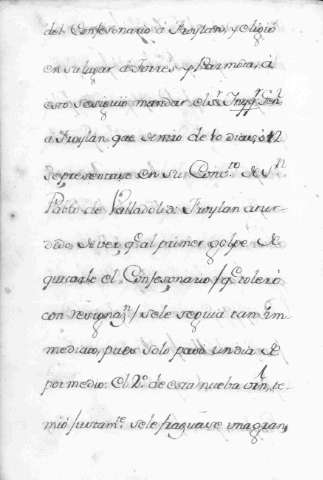 del Confesonario á Froylan, y eligió
en su lugar á Torres y Barmeda, á
esto se siguió mandar el Sr. Inqqr. Genl.
á Froylan, que dentro de 10 dias, ó 12
se presentase en su Convto. de Sn.
Pablo de Valladolid: Froylan atur-
dido, de ver, qe. al primer golpe de
quitarle el Confesonario / qe. toleró
con resignazn. / se le seguia tan im
mediato, pues solo pasó un dia de
por medio: el 2º. de esta nueba orn, te-
mió justamte. se le fraguase una gran,